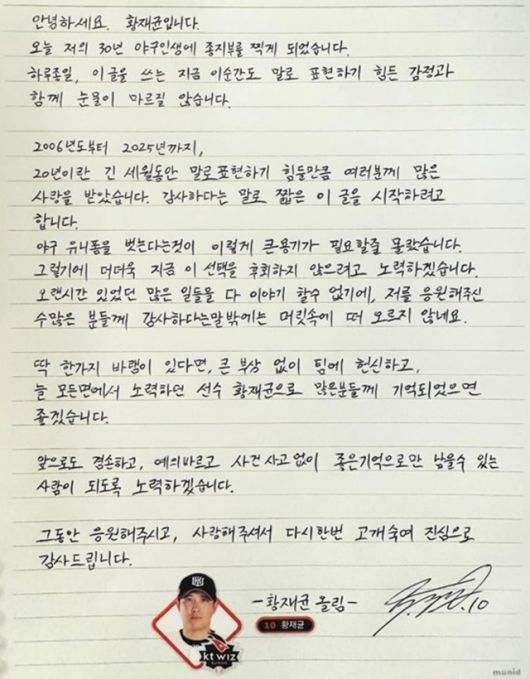 안녕하세요. 황재균입니다.
오늘 저의 30년 야구인생에 종지부를 찍게 되었습니다.
하루종일, 이 글을 쓰는 지금 이순간도 말로 표현하기 힘든 감정과
함께 눈물이 마르질 않습니다.
2006년도부터 2025년까지,
20년이란 긴 세월동안 말로 표현하기 힘들만큼 여러분께 많은
사랑을 받았습니다. 감사하다는 말로 짧은 이 글을 시작하려고
합니다.
야구 유니폼을 벗는다는것이 이렇게 큰용기가 필요할줄 몰랐습니다.
그렇기에 더더욱 지금 이 선택을 후회하지 않으려고 노력하겠습니다.
오랜시간 있었던 많은 일들을 다 이야기 할수 없기에, 저를 응원해주신
수많은 분들께 감사하다는말밖에는 머릿속에 떠 오르지 않네요.
딱 한가지 바램이 있다면, 큰 부상 없이 팀에 헌신하고,
늘 모든면에서 노력하던 선수 황재균으로 많은분들께 기억되었으면
좋겠습니다.
앞으로도 겸손하고, 예의바르고 사건 사고 없이 좋은기억으로만 남을수 있는
사람이 되도록 노력하겠습니다.
그동안 응원해주시고, 사랑해주셔서 다시한번 고개숙여 진심으로
감사드립니다.
-황재균 올림-
10 황재균
kt wiz
10
munid